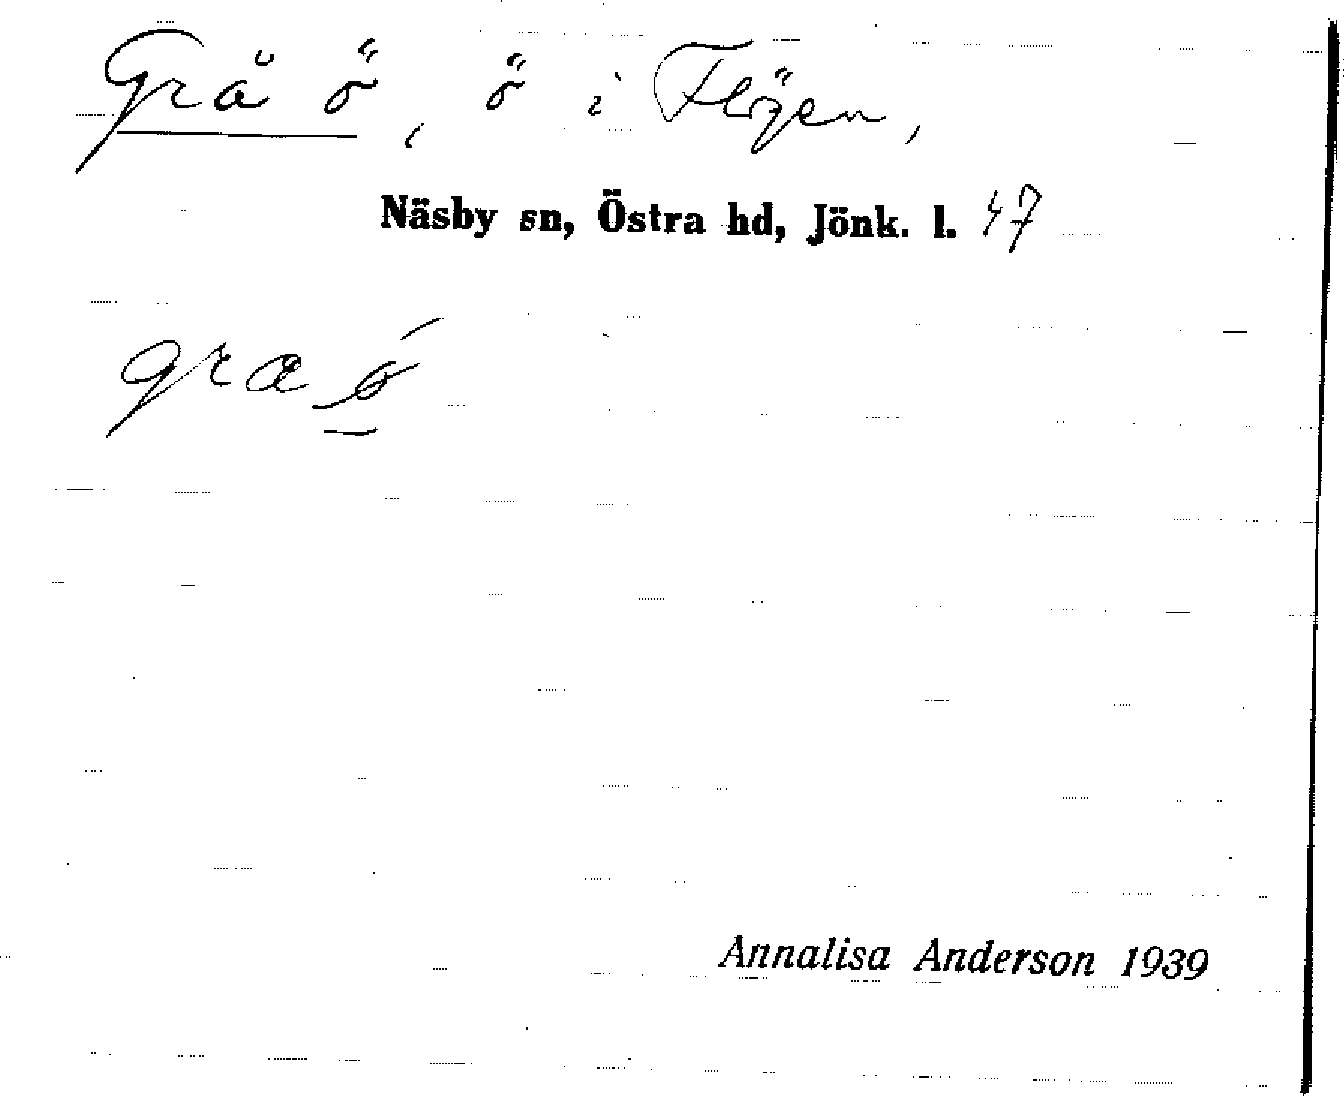 Grå ö, ö i Flögen,
Näsby sn, Östra hd, Jönk. l. 47
Annalisa Anderson 1939